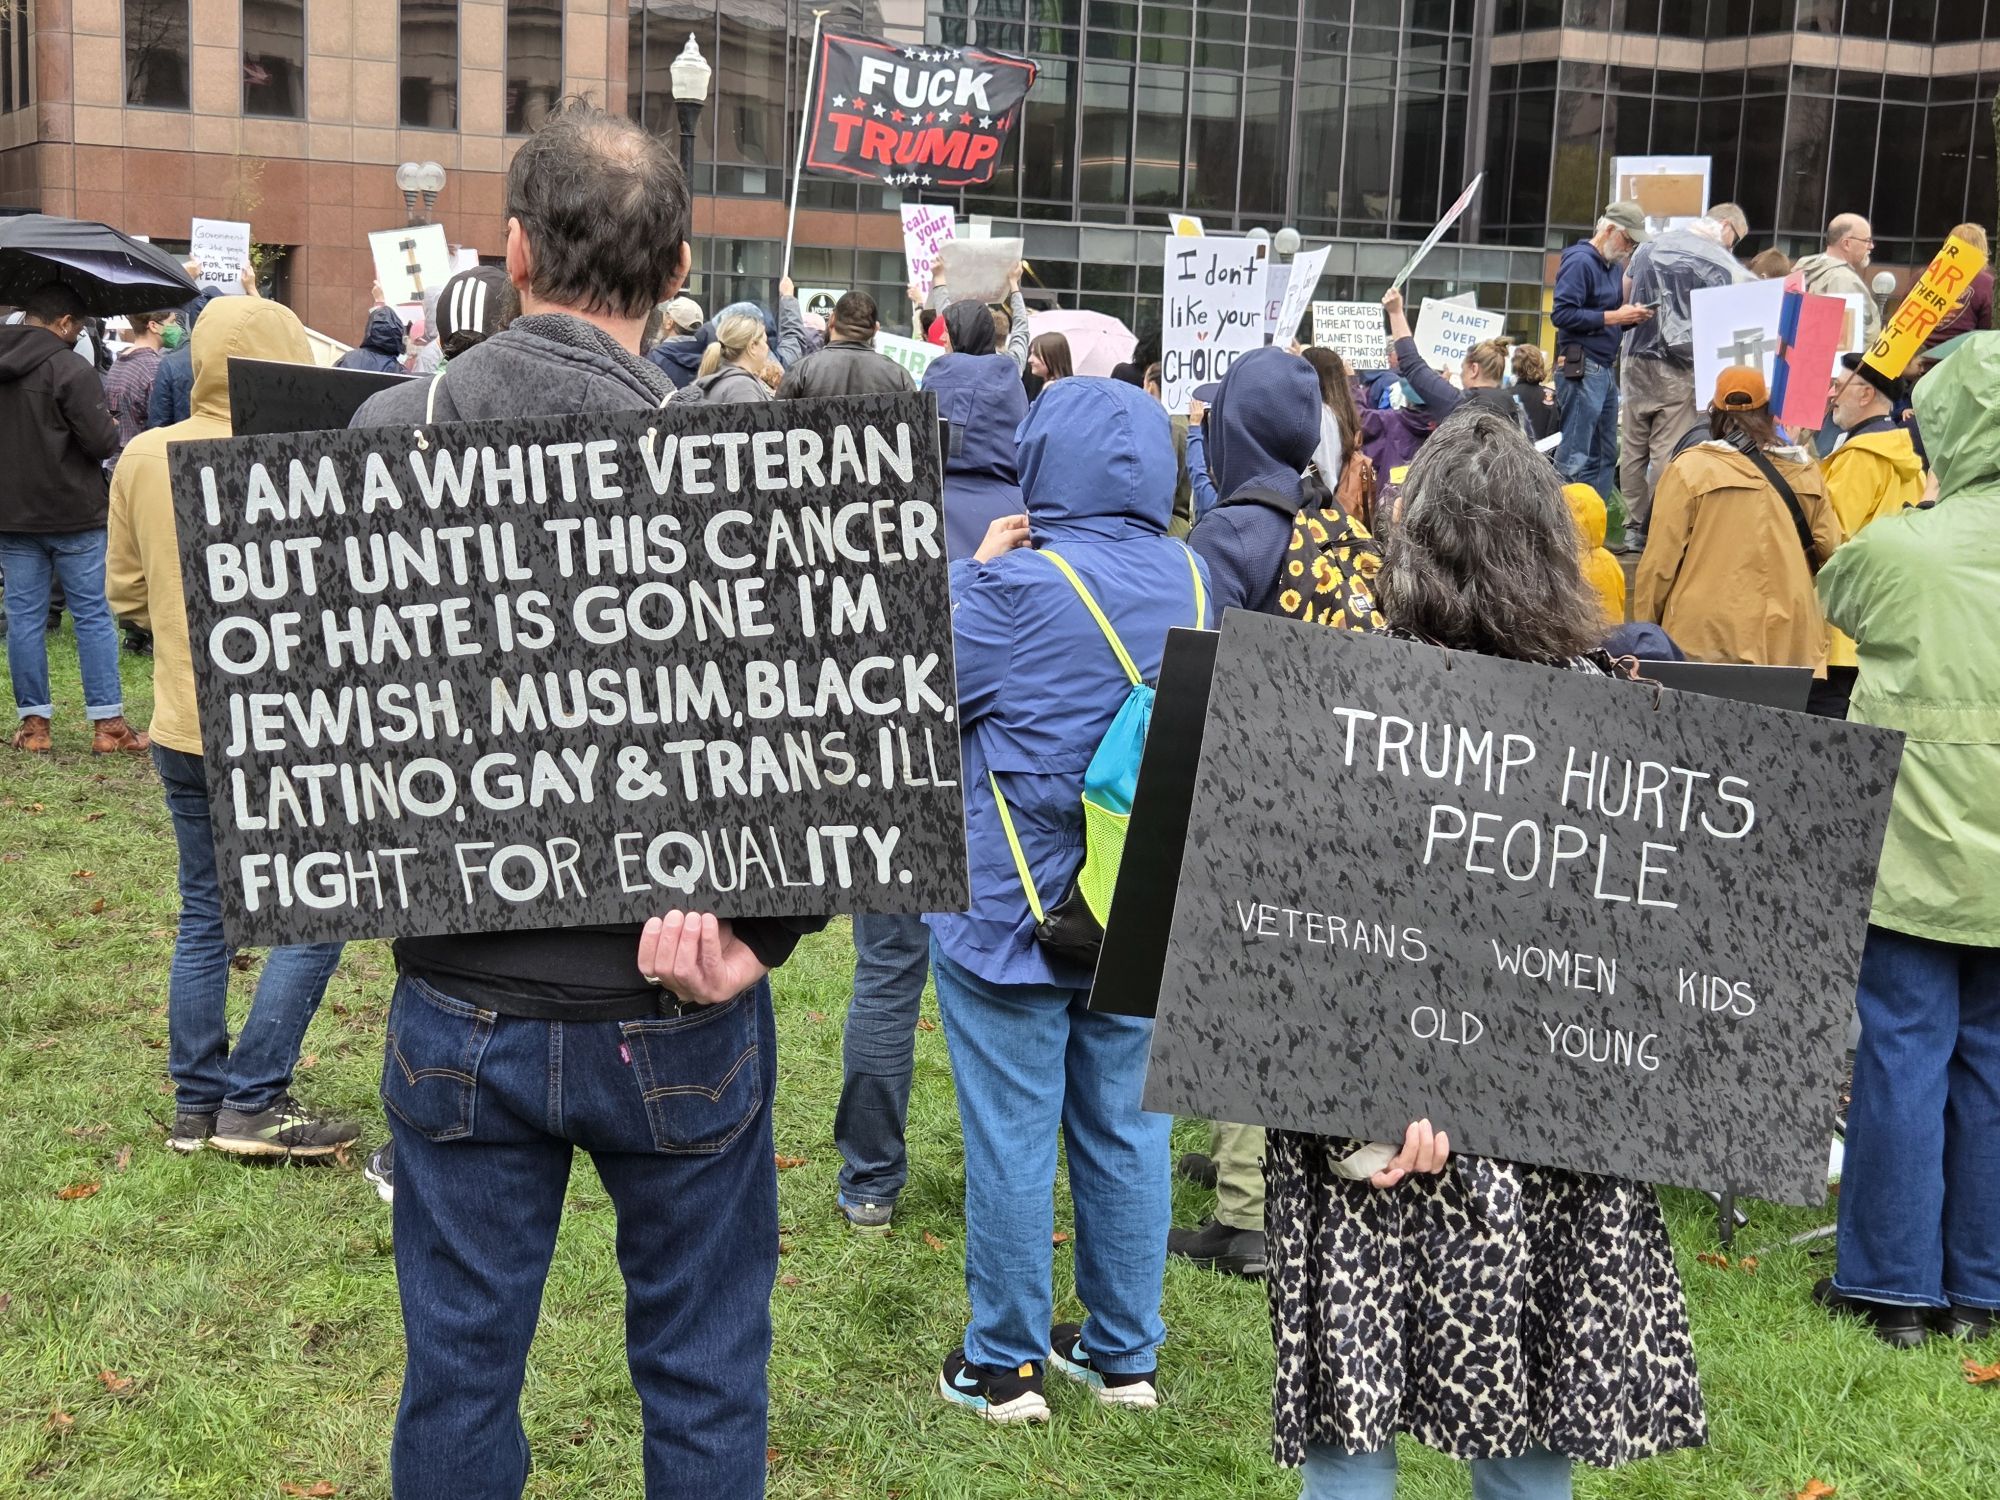 FUCK
TRUMP
Government
of the people
by the people
FOR THE
PEOPLE!
call
your
dad
I don't
like your
CHOICE
US
THE GREATEST
THREAT TO OUR
PLANET IS THE
PLANET
OVER
PROF
THEIR
I AM A WHITE VETERAN
BUT UNTIL THIS CANCER
OF HATE IS GONE I'M
JEWISH, MUSLIM, BLACK,
LATINO, GAY & TRANS. I'LL
FIGHT FOR EQUALITY.
TRUMP HURTS
PEOPLE
VETERANS WOMEN KIDS
OLD YOUNG